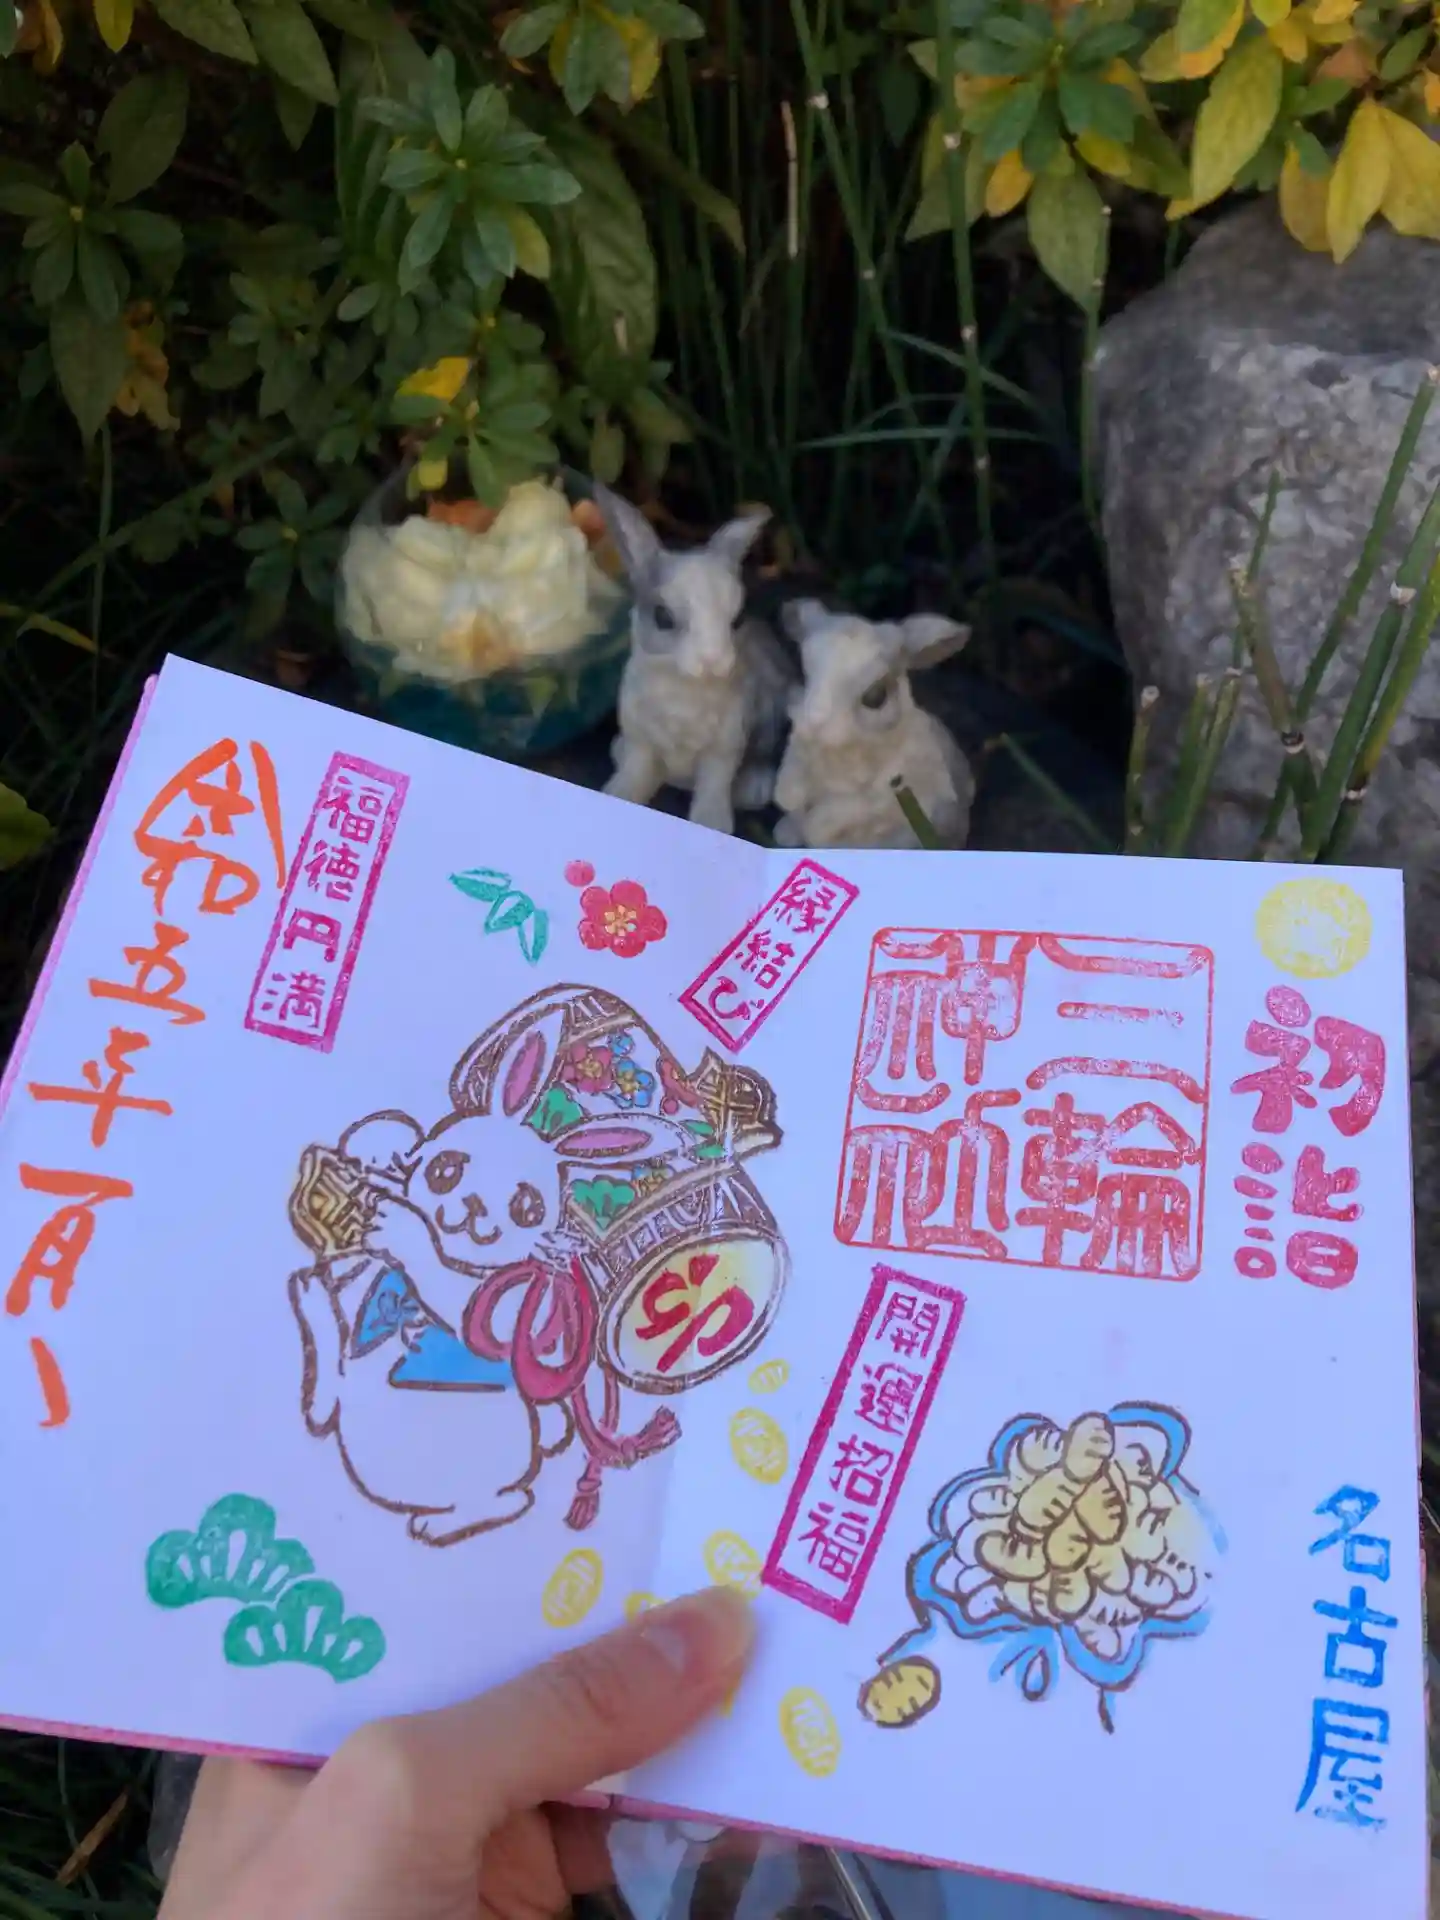 初詣
三輪
神社
名古屋
縁結び
開運招福
卯
福徳円満
令和五年一月一